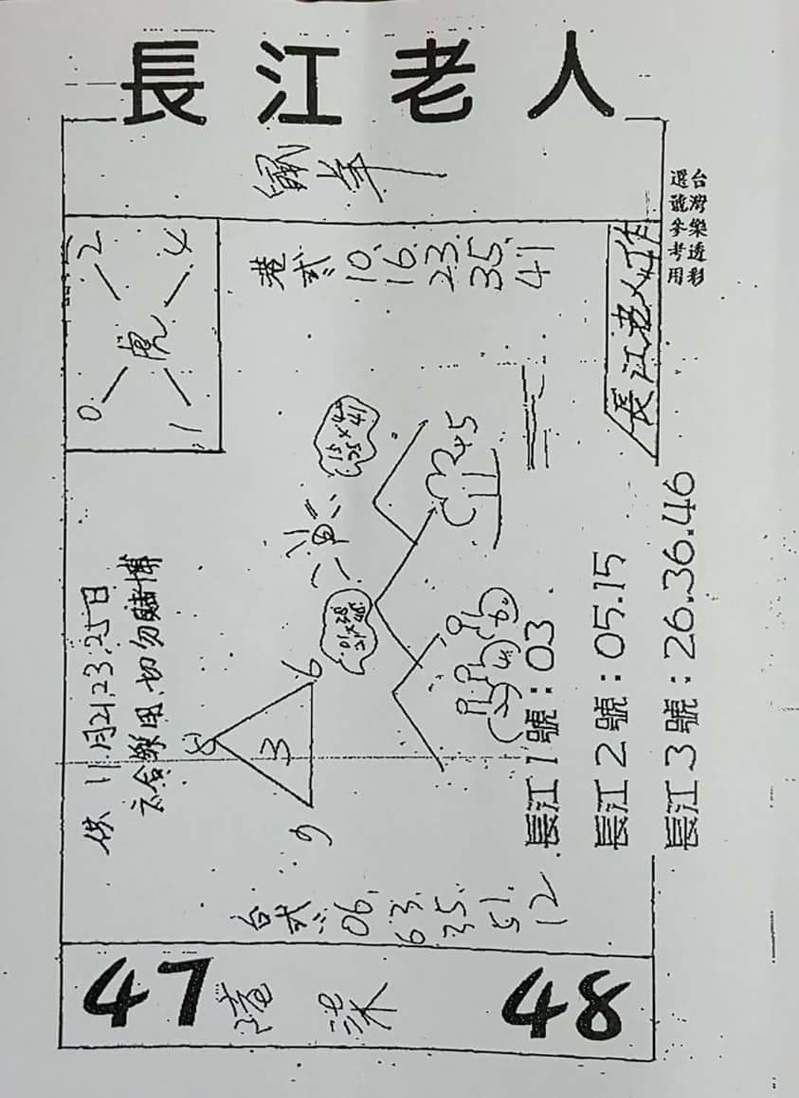 長江老人
台灣樂透彩
選號參考用
長江老人作
港式
10.
16.
23.
35.
41
2
4
虎
0
1
45
供11月21.23.25日
六合參用、切勿賭博
8
6
3
9
台式:
06.
63.
35.
51.
12
長江1號:03
長江2號:05.15
長江3號:26.36.46
47
48